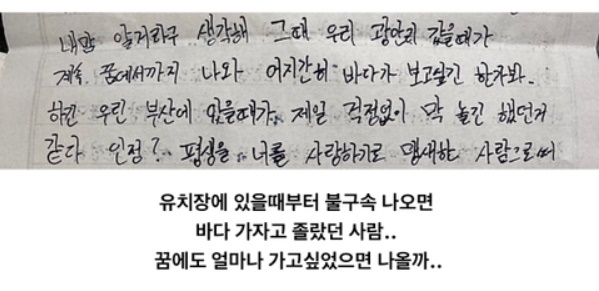 내맘 알거라구 생각해 그때 우리 광안리 갔을때가
계속 꿈에서까지 나와 어지간히 바다가 보고싶긴 한가봐.
하긴 우린 부산에 있을때가 제일 걱정없이 막 놀긴 했던거
같다 인정? 평생을 너를 사랑하기로 맹새한 사람으로써
유치장에 있을때부터 불구속 나오면
바다 가자고 졸랐던 사람..
꿈에도 얼마나 가고싶었으면 나올까..